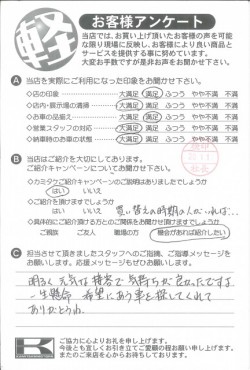 軽
お客様アンケート
当店では、お買い上げ頂いたお客様の声を可能
な限り現場に反映し、お客様により良い商品と
サービスを提供する事に努めています。
大変お手数ですが是非お声をお聞かせ下さい。
A 当店を実際にご利用になった印象をお聞かせ下さい。
◇店の印象 大満足 満足 ふつう やや不満 不満
◇店内・展示場の清掃 大満足 満足 ふつう やや不満 不満
◇お車の品揃え 大満足 満足 ふつう やや不満 不満
◇営業スタッフの対応 大満足 満足 ふつう やや不満 不満
◇納車時のお車の状態 大満足 満足 ふつう
B 当店はご紹介を大切にしております。
ご紹介キャンペーンについてお聞かせ下さい。
◇カミタケご紹介キャンペーンのご説明はありましたでしょうか
はい いいえ
◇ご紹介を頂けますでしょうか
はい いいえ 買い替え時期の人がいれば…
◇具体的にご紹介頂ける方とのご関係をお聞かせ頂けますでしょうか
ご親族 ご友人 職場の方 機会があれば紹介したい
C 担当させて頂きましたスタッフへのご指摘、ご指導メッセージを
お願いします。応援メッセージもぜひお願いします。
明るく元気な接客で気持ちが良かったですよ
一生懸命 希望にあう車を探してくれて
ありがとうね
K
ご協力に心よりお礼を申し上げます。
今後とも宜しくお引き立てご愛顧の程お願い申し上げます。
またのご来店を心からお待ちしております。